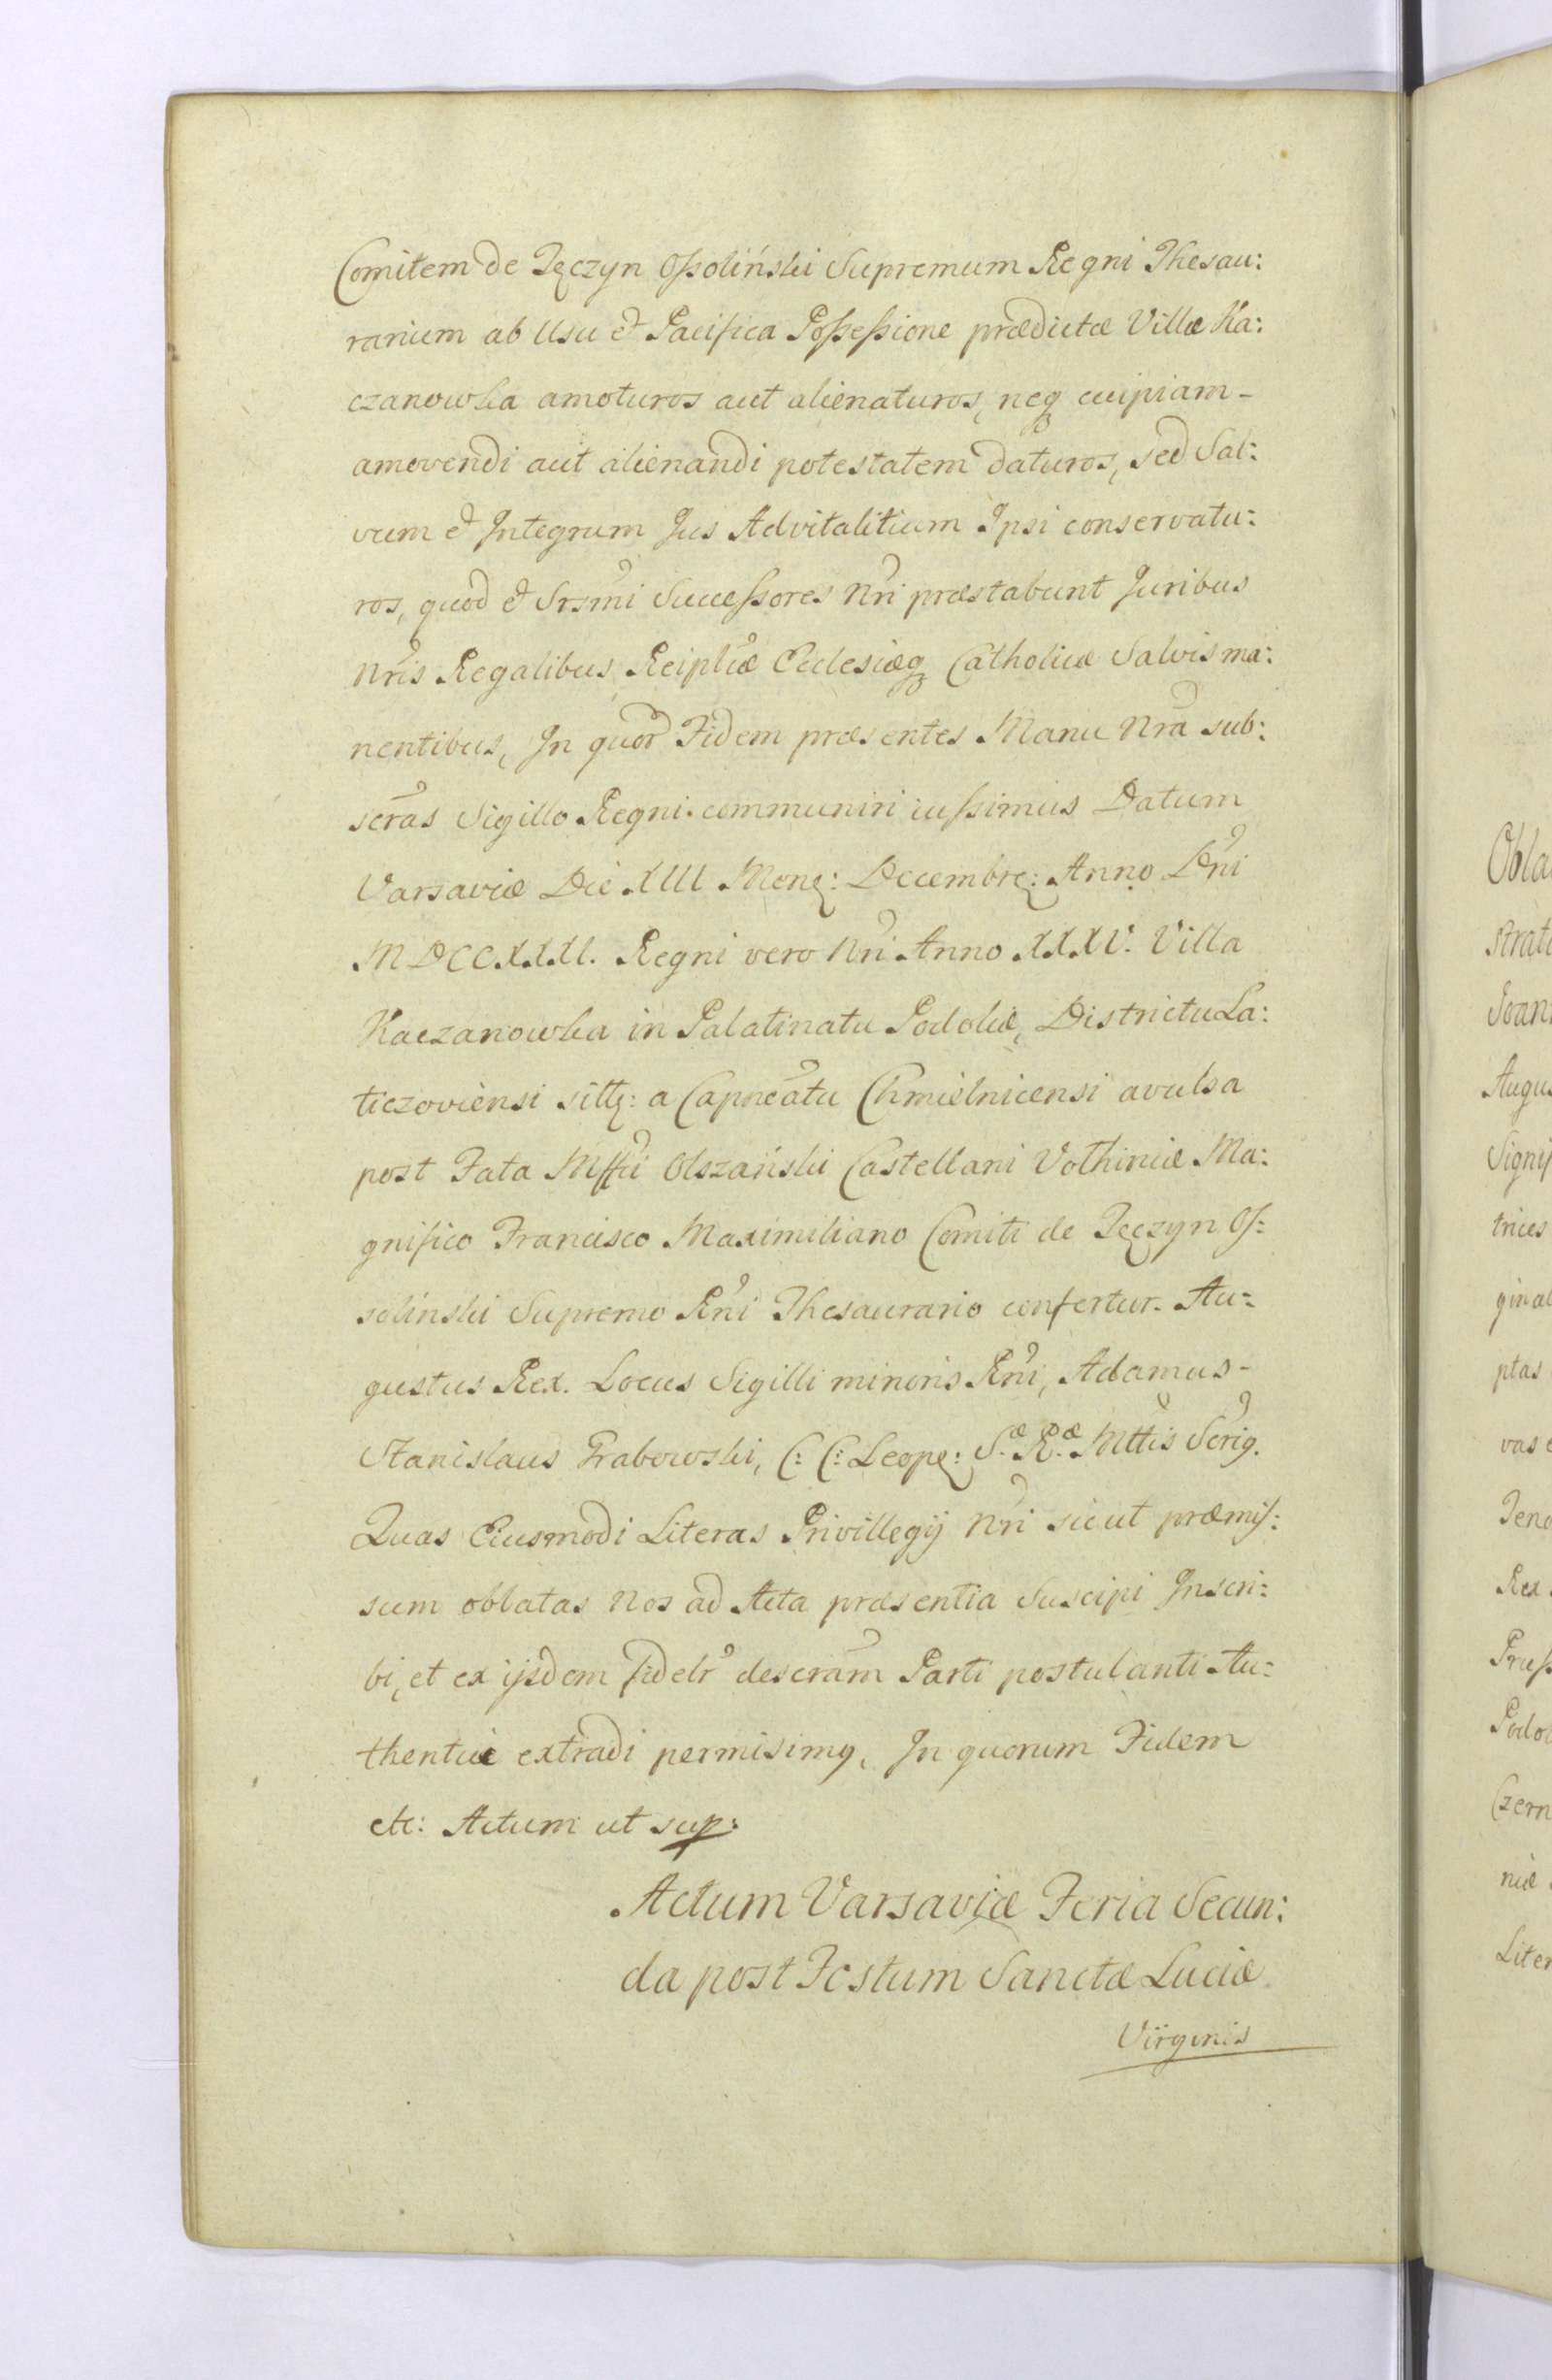 Comitem de Tęczyn Ossoliński Supremum Regni Thesau:
rarium ab Usu et Pacifica Possessione prædictæ Villæ Ka:
czanowka amoturos aut alienaturos, neq cuipiam -
amovendi aut alienandi potestatem daturos, sed Sal:
vum et Integrum Jus Advitalitium Ipsi conservatu:
ros, quod et Srsmi Successores Nri præstabunt Juribus
Nris Regalibus Reiplicæ Ecclesiæq Catholicæ Salvis ma:
nentibus, In quor Fidem præsentes Manu Nra sub:
scras Sigillo Regni communiri iussimus Datum
Varsaviæ Die XIII Mens: Decembrs: Anno Dni
MDCCXXXI. Regni vero Nri Anno XXXV. Villa
Kaczanowka in Palatinatu Podoliæ, Districtu La:
ticzoviensi sitt: a Capneatu Chmielnicensi avulsa
post Fata Mffci Olszański Castellani Volhiniæ Ma:
gnifico Francisco Maximiliano Comiti de Tęczyn Os:
soliński Supremo Rni Thesaurario confertur. Au:
gustus Rex. Locus Sigilli minoris Rni, Adamus -
Stanislaus Grabowski, C: C: Leops: S.æ R.æ Mttis Scrig.
Quas Eiusmodi Literas Privillegij Nri sicut præmis:
sum oblatas Nos ad Acta præsentia Suscipi Inscri:
bi, et ex ijsdem fidelr descram Parti postulanti Au:
thentice extradi permisimg, In quorum Fidem
etc: Actum ut sup:
Actum Varsaviæ Feria Secun:
da post Festum Sanctæ Luciæ
Virginis
Obla
strat
Joan
Augus
Signif
trices
ginal
ptas
vas
Teno
Rex
Pruss
Podol
Czern
niæ
Liter